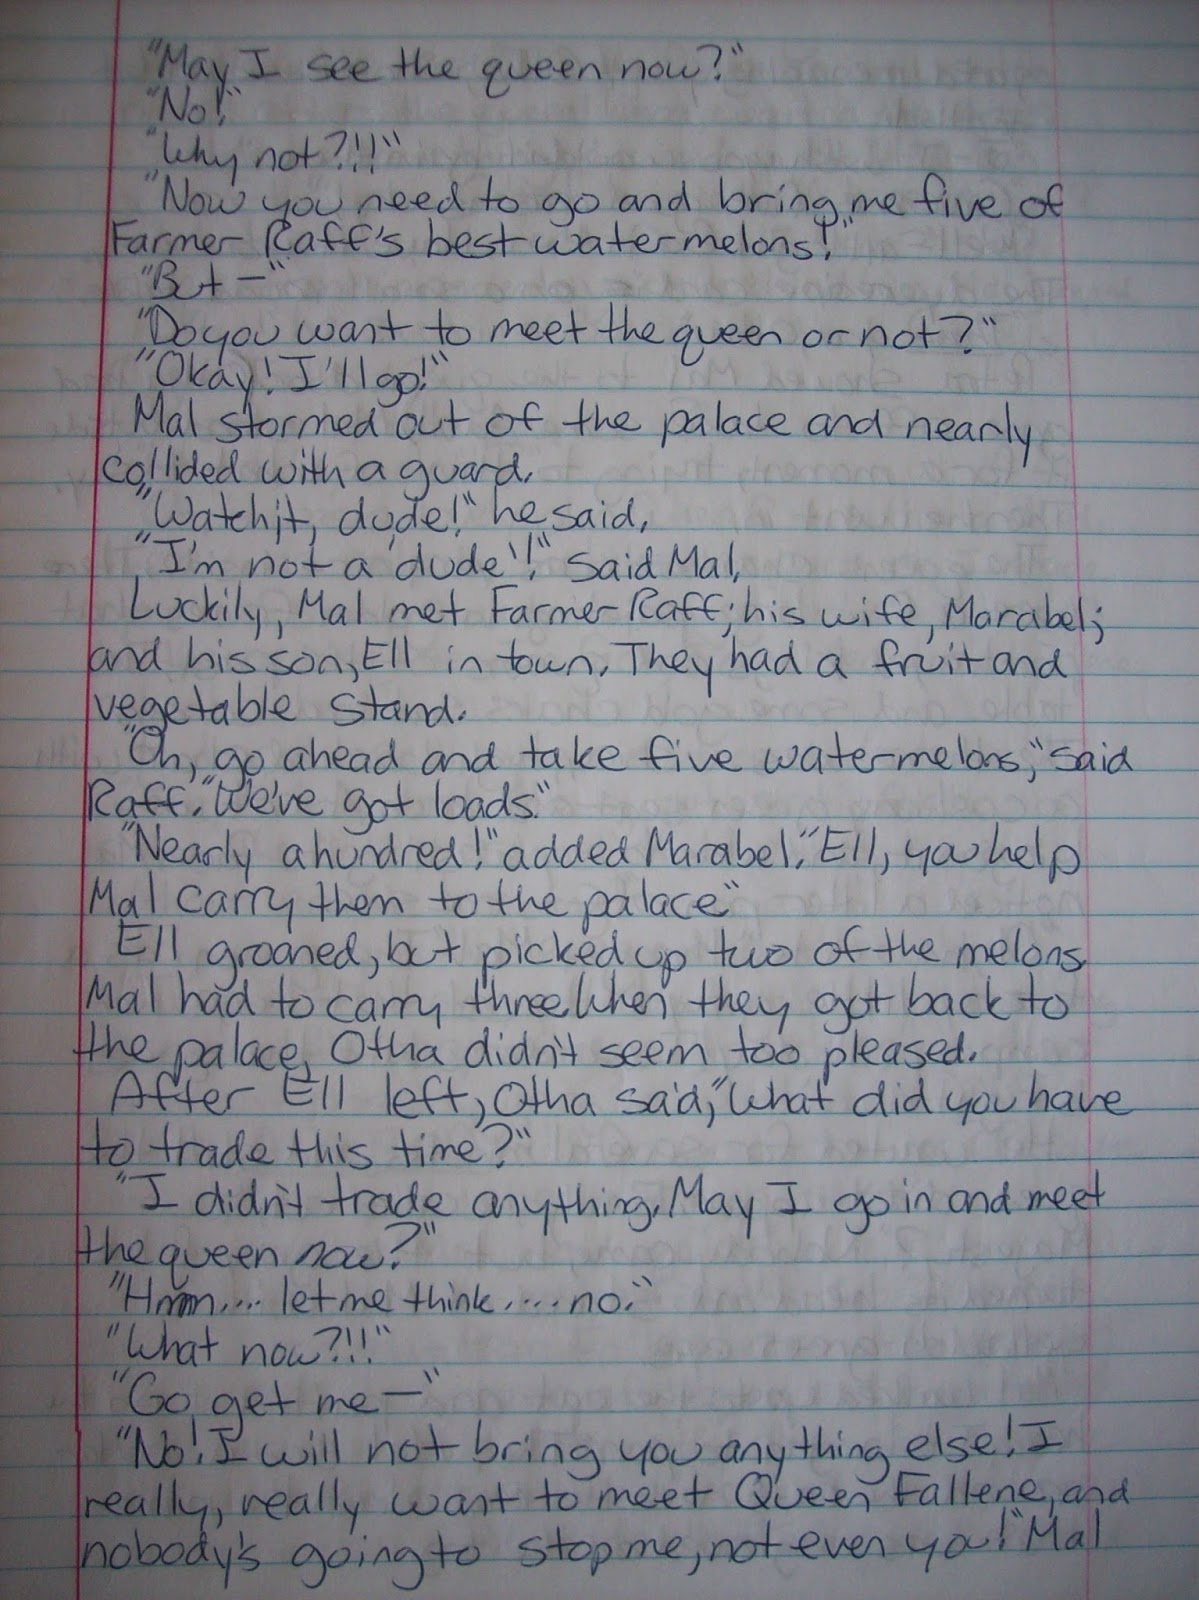 "May I see the queen now?"
"No!"
"Why not?!!"
"Now you need to go and bring me five of
Farmer Raff's best watermelons!"
"But —"
"Do you want to meet the queen or not?"
"Okay! I'll go!"
Mal stormed out of the palace and nearly
collided with a guard.
"Watch it, dude!" he said.
"I'm not a 'dude'!" said Mal.
Luckily, Mal met Farmer Raff; his wife, Marabel;
and his son, Ell in town. They had a fruit and
vegetable stand.
"Oh, go ahead and take five watermelons," said
Raff. "We've got loads."
"Nearly a hundred!" added Marabel. "Ell, you help
Mal carry them to the palace"
Ell groaned, but picked up two of the melons.
Mal had to carry three. When they got back to
the palace, Otha didn't seem too pleased.
After Ell left, Otha said, "What did you have
to trade this time?"
"I didn't trade anything. May I go in and meet
the queen now?"
"Hmm.... let me think.....no."
"What now?!!"
"Go get me —"
"No! I will not bring you anything else! I
really, really want to meet Queen Fallene, and
nobody's going to stop me, not even you!" Mal